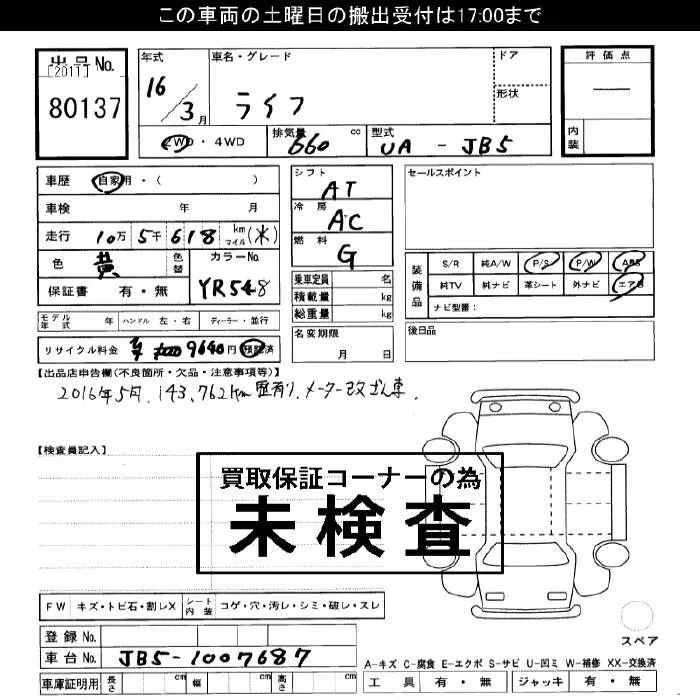 この車両の土曜日の搬出受付は17:00まで
出品No.
[2011]
80137
年式
16/3月
車名・グレード
ライフ
ドア
形状
評価点
—
内装
2WD・4WD
排気量 660 cc
型式 UA - JB5
車歴 自家用・( )
車検 年 月
走行 10万 5千 618 km マイル (米)
色 黄 色替
カラーNo. YR548
保証書 有・無
シフト AT
冷房 AC
燃料 G
乗車定員 名
積載量 kg
総重量 kg
セールスポイント
装備品
S/R 純A/W P/S P/W ABS
純TV 純ナビ 革シート 外ナビ エアB
ナビ型番:
モデル年式 年 ハンドル 左・右 ディーラー・並行
名変期限
月 日
後日品
リサイクル料金 9640円 預託済
【出品店申告欄(不良箇所・欠品・注意事項等)】
2016年5月、143,762km 歴有り、メーター改ざん車.
【検査員記入】
買取保証コーナーの為
未検査
FW キズ・トビ石・割レX シート内装 コゲ・穴・汚レ・シミ・破レ・スレ
登録No.
車台No. JB5-1007687
スペア
A-キズ C-腐食 E-エクボ S-サビ U-凹ミ W-補修 XX-交換済
車庫証明用 長さ cm 幅 cm 高さ cm
工具 有・無 ジャッキ 有・無